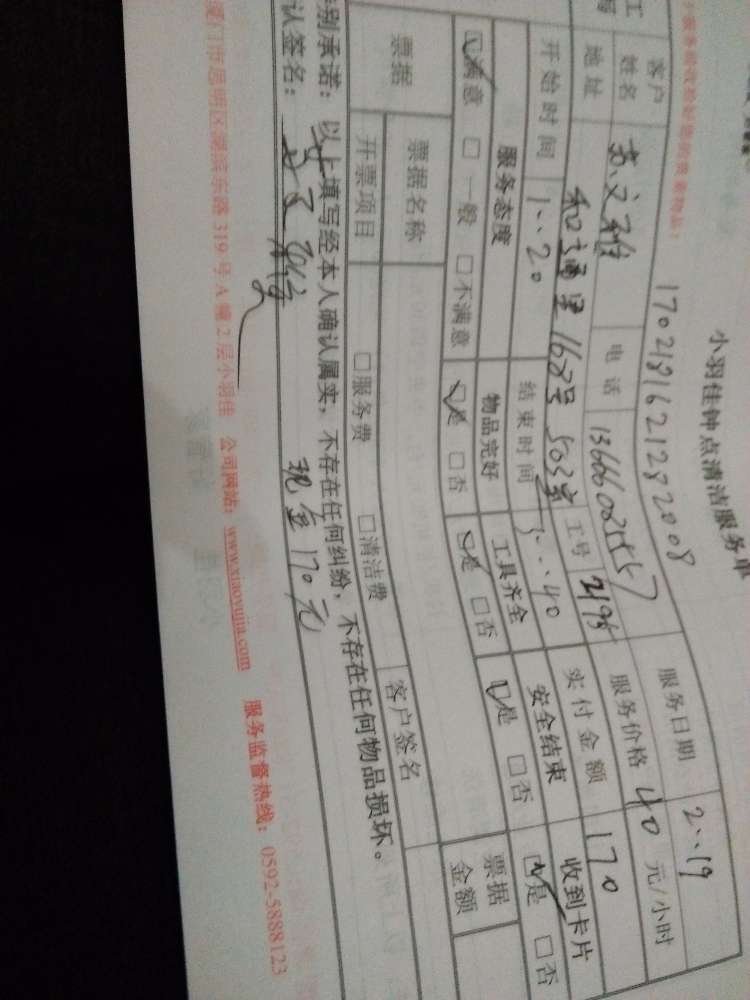 小羽佳钟点清洁服务单
1702181621282008
服务日期 2..19
客户姓名 电话 服务价格 40 元/小时
地址 和通里168号503室 工号 2195 实付金额 170
开始时间 1..20 结束时间 3..40
服务态度 物品完好 工具齐全 安全结束 收到卡片
☑满意 □一般 □不满意 ☑是 □否 ☑是 □否 ☑是 □否 ☑是 □否
票据 票据名称 客户签名 票据金额
开票项目 □服务费 □清洁费
别承诺：以上填写经本人确认属实，不存在任何纠纷，不存在任何物品损坏。
认签名： 现金170元
厦门市思明区湖滨东路319号A幢2层小羽佳 公司网站：www.xiaoyujia.com 服务监督热线：0592-5888123